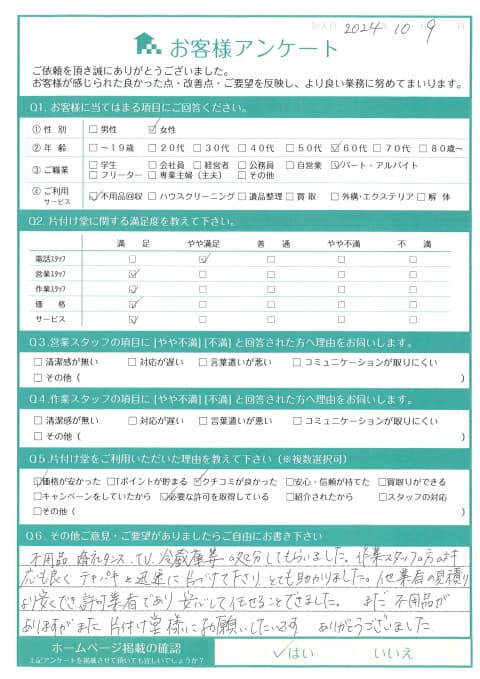 記入日 2024年 10月 9日
お客様アンケート
ご依頼を頂き誠にありがとうございました。
お客様が感じられた良かった点・改善点・ご要望を反映し、より良い業務に努めてまいります。
Q1. お客様に当てはまる項目にご回答ください。
①性 別 □男性 ☑女性
②年 齢 □～19歳 □20代 □30代 □40代 □50代 ☑60代 □70代 □80歳～
③ご職業 □学生 □会社員 □経営者 □公務員 □自営業 ☑パート・アルバイト
□フリーター □専業主婦（主夫） □その他
④ご利用サービス ☑不用品回収 □ハウスクリーニング □遺品整理 □買取 □外構・エクステリア □解体
Q2. 片付け堂に関する満足度を教えて下さい。
満 足 やや満足 普 通 やや不満 不 満
電話スタッフ □ ☑ □ □ □
営業スタッフ ☑ □ □ □ □
作業スタッフ ☑ □ □ □ □
価 格 ☑ □ □ □ □
サービス ☑ □ □ □ □
Q3.営業スタッフの項目に [やや不満] [不満] と回答された方へ理由をお伺いします。
□清潔感が無い □対応が遅い □言葉遣いが悪い □コミュニケーションが取りにくい
□その他（ ）
Q4.作業スタッフの項目に [やや不満] [不満] と回答された方へ理由をお伺いします。
□清潔感が無い □対応が遅い □言葉遣いが悪い □コミュニケーションが取りにくい
□その他（ ）
Q5.片付け堂をご利用いただいた理由を教えて下さい（※複数選択可）
☑価格が安かった □Tポイントが貯まる ☑クチコミが良かった □安心・信頼が持てた □買取りができる
□キャンペーンをしていたから ☑必要な許可を取得している □紹介されたから □スタッフの対応
□その他
Q6. その他ご意見・ご要望がありましたらご自由にお書き下さい
不用品 婚礼タンス、TV、冷蔵庫等の処分してもらいました。作業スタッフの方は対
応も良く テキパキと迅速に片づけて下さり とても助かりました。他業者の見積り
より安くでき許可業者であり 安心して任せることできました。 まだ 不用品が
ありますがまた 片付け堂様にお願いしたいです ありがとうございました
ホームページ掲載の確認
上記アンケートを掲載させて頂いても宜しいでしょうか？
✓はい いいえ